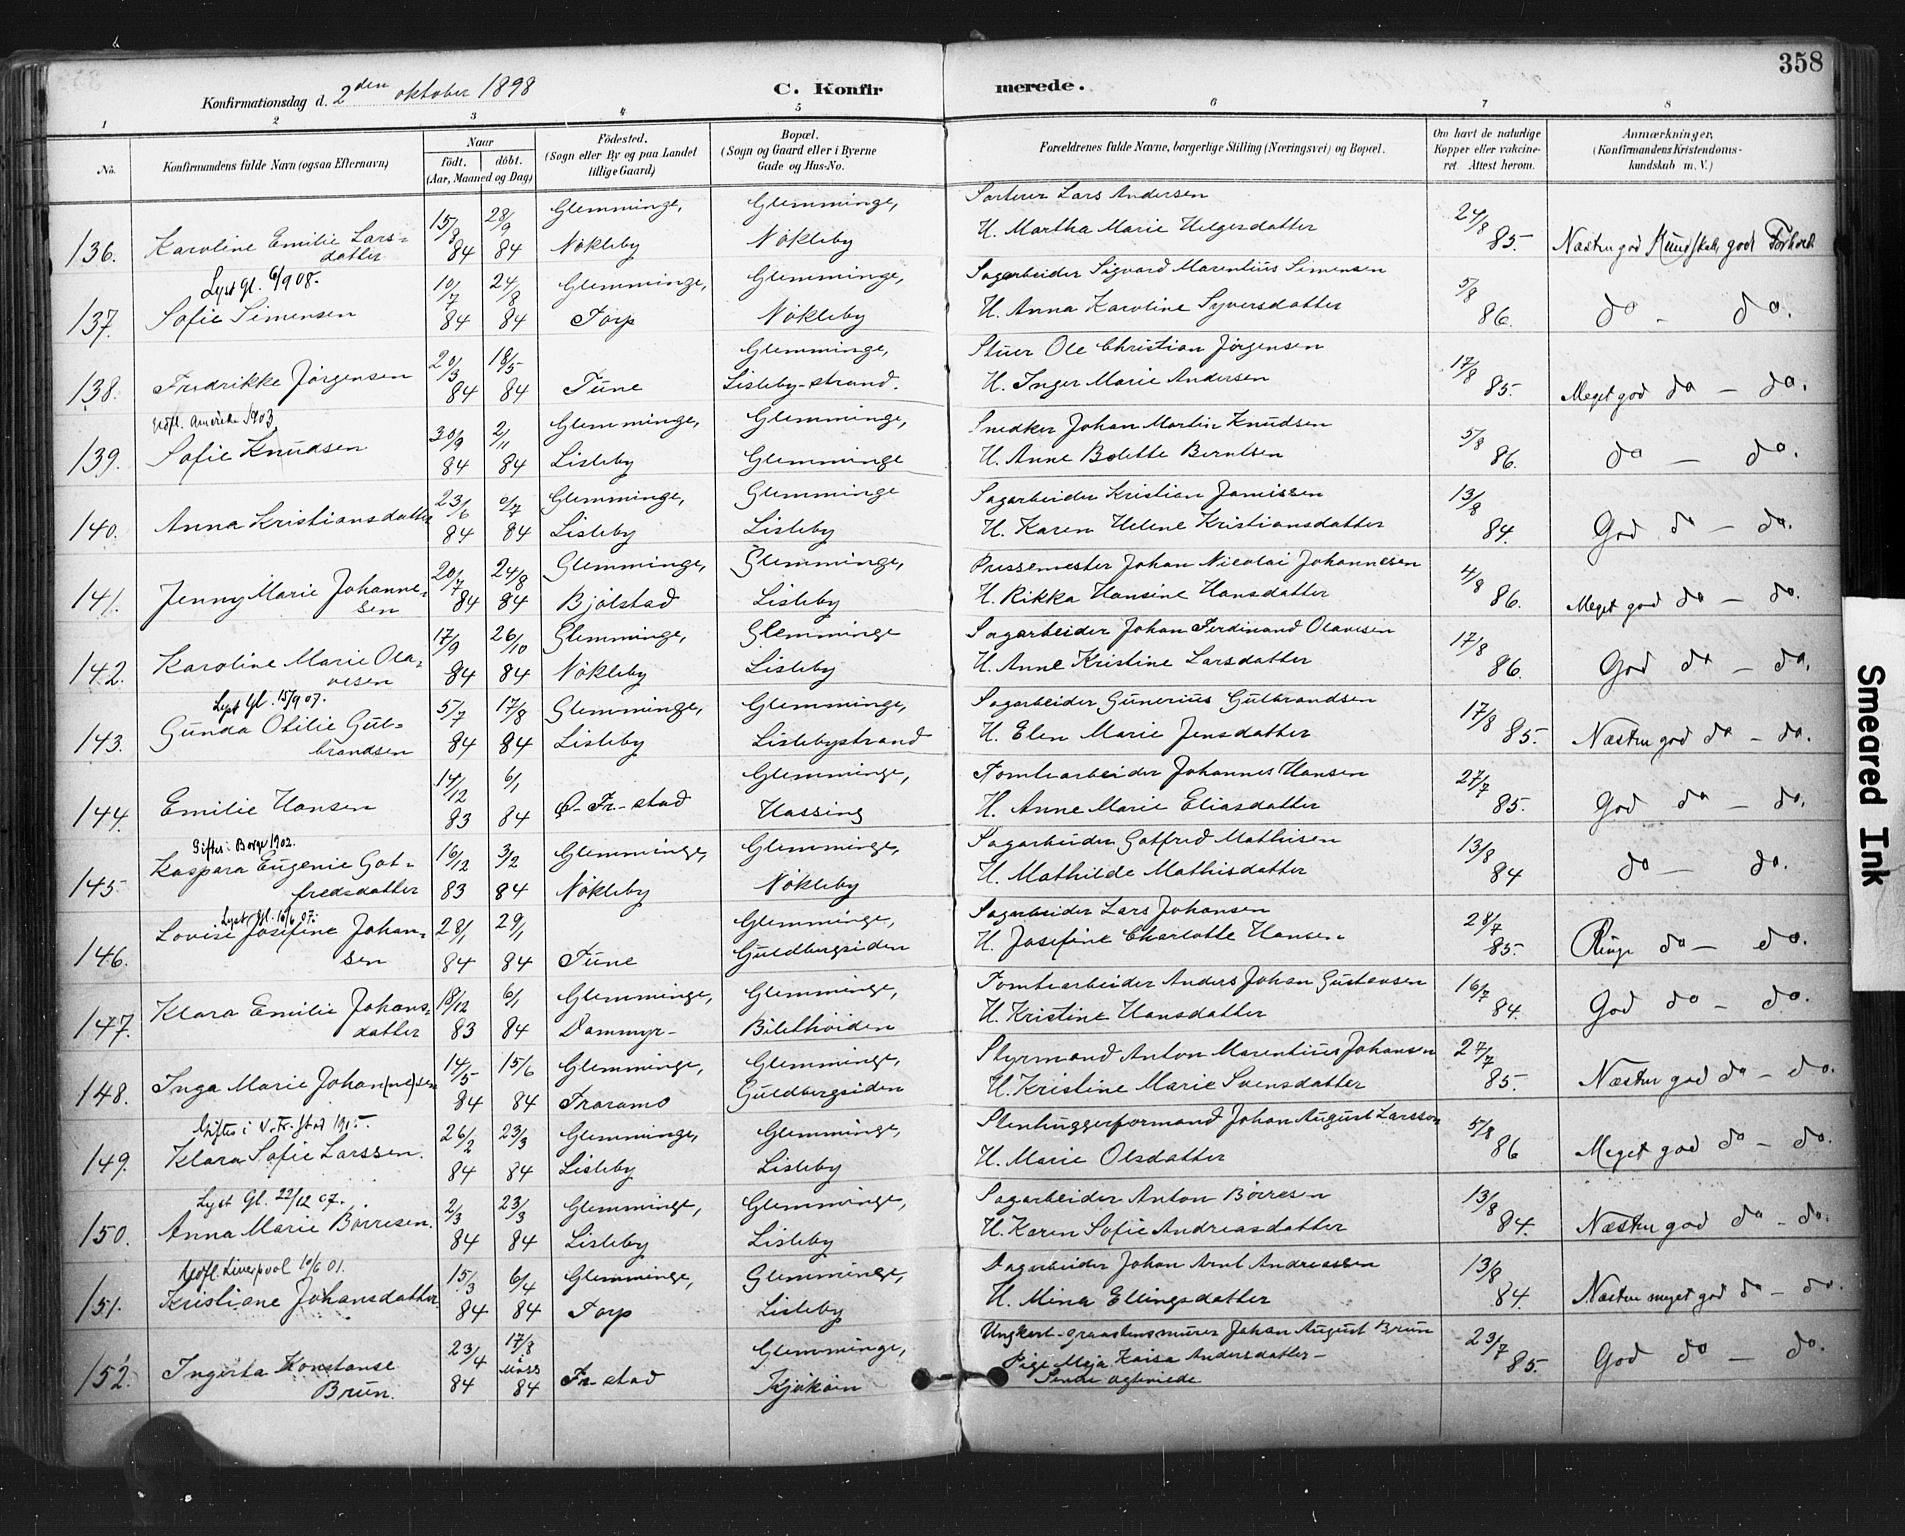 358
Konfirmationsdag d. 2den oktober 1898
C. Konfirmerede.
1 2 3 4 5 6 7 8
No.
Konfirmandens fulde Navn (ogsaa Efternavn)
Naar
født. døbt.
(Aar, Maaned og Dag)
Fødested. (Sogn eller By og paa Landet tillige Gaard)
Bopæl. (Sogn og Gaard eller i Byerne Gade og Hus-No.
Forældrenes fulde Navne, borgerlige Stilling (Næringsvei) og Bopæl.
Om havt de naturlige Kopper eller vakcineret. Attest herom.
Anmærkninger, (Konfirmandens Kristendomskundskab m. V.)
136. Karoline Emilie Larsdatter 15/8 84 28/9 84 Glemminge, Nökleby Glemminge, Nökleby Sorterer Lars Andersen
H. Martha Marie Helgesdatter 24/8 85. Næsten god Kundskab, god Forhold
Lyst Gl. 6/9 08.
137. Sofie Simensen 10/7 84 24/8 84 Glemminge, Torp Glemminge, Nökleby Sagarbeider Sigvard Marentius Simensen
H. Anna Karoline Syversdatter 5/8 86. do - do.
138. Fredrikke Jörgensen 20/3 84 18/5 84 Tune Glemminge, Lisleby-strand. Stuer Ole Christian Jörgensen
H. Inger Marie Andersen 17/8 85. Meget god do - do.
Udfl. Amerika 1903
139. Sofie Knudsen 30/9 84 2/11 84 Glemminge, Lisleby Glemminge, Glemminge Snedker Johan Martin Knudsen
H. Anne Bolette Berntsen 5/8 86. do - do.
140. Anna Kristiansdatter 23/6 84 /7 84 Glemminge, Lisleby Glemminge Lisleby Sagarbeider Kristian Jamissen
H. Karen Helene Kristiansdatter 13/8 84. God do - do.
141. Jenny Marie Johannesen 20/7 84 24/8 84 Glemminge, Bjölstad Glemminge, Lisleby Pressemester Johan Nicolai Johannesen
H. Rikka Hansine Hansdatter 4/8 86. Meget god do - do.
142. Karoline Marie Olavesen 17/9 84 26/10 84 Glemminge, Nökleby Glemminge Lisleby Sagarbeider Johan Ferdinand Olavesen
H. Anne Kristine Larsdatter 17/8 86. God do - do.
Lyst Gl. 15/9 07.
143. Gunda Otilie Gulbrandsen 5/7 84 17/8 84 Glemminge, Lisleby Glemminge, Lislebystrand Sagarbeider Gunerius Gulbrandsen
H. Elen Marie Jensdatter 17/8 85. Næsten god do - do.
144. Emilie Hansen 14/12 83 6/1 84 Ø-Fr-stad Glemminge, Hassing Tomtearbeider Johannes Hansen
H. Anne Marie Eliasdatter 27/7 85. God do - do.
Giftes i Borge 1902.
145. Kaspara Eugenie Gotfredsdatter 16/12 83 3/2 84 Glemminge, Nökleby Glemminge, Nökleby Sagarbeider Gotfred Mathisen
H. Mathilde Mathisdatter 13/8 84 do - do.
Lyst Gl. 16/6 07.
146. Lovise Josefine Johansen 28/1 84 29/1 84 Tune Glemminge, Guldbergsiden Sagarbeider Lars Johansen
H. Josefine Charlotte Hansen 28/7 85. Ringe do - do.
147. Klara Emilie Johansdatter 18/12 83 6/1 84 Glemminge, Dammyr- Glemminge, Bilethöiden Tomtearbeider Anders Johan Gustavsen
H. Kristine Hansdatter 16/7 84. God do - do.
148. Inga Marie Johan(ne)sen 14/5 84 15/6 84 Glemminge, Traramo Glemminge, Guldbergsiden Styrmand Anton Marentius Johansen
H. Kristine Marie Svensdatter 27/7 85. Næsten god do - do.
Giftes i V. Fr.stad 1915.
149. Klara Sofie Larssen. 26/2 84 23/3 84 Glemminge, Lisleby Glemminge, Lisleby Stenhuggerformand Johan August Larsson
H. Marie Olsdatter 5/8 86 Meget god do - do.
Lyst Gl. 22/12 07.
150. Anna Marie Börresen. 2/3 84 23/3 84 Glemminge, Lisleby Glemminge, Lisleby Sagarbeider Anton Börresen
H. Karen Sofie Andreasdatter 13/8 84. Næsten god do - do.
Udfl. Liverpool 10/6 01.
151. Kristiane Johansdatter. 15/3 84 6/4 84 Glemminge, Torp Glemminge, Lisleby Dagarbeider Johan Arnt Andreassen
H. Mina Ellingsdatter 13/8 84. Næsten meget god do - do.
152. Ingerta Konstanse Brun. 23/4 84 17/8 Moss 84 Fr-stad Glemminge, Kjøkøin Ungkarl-graastensmurer Johan August Brun
Pige Meja Kaisa Andersdatter - 23/7 85. God do - do.
Smeared Ink